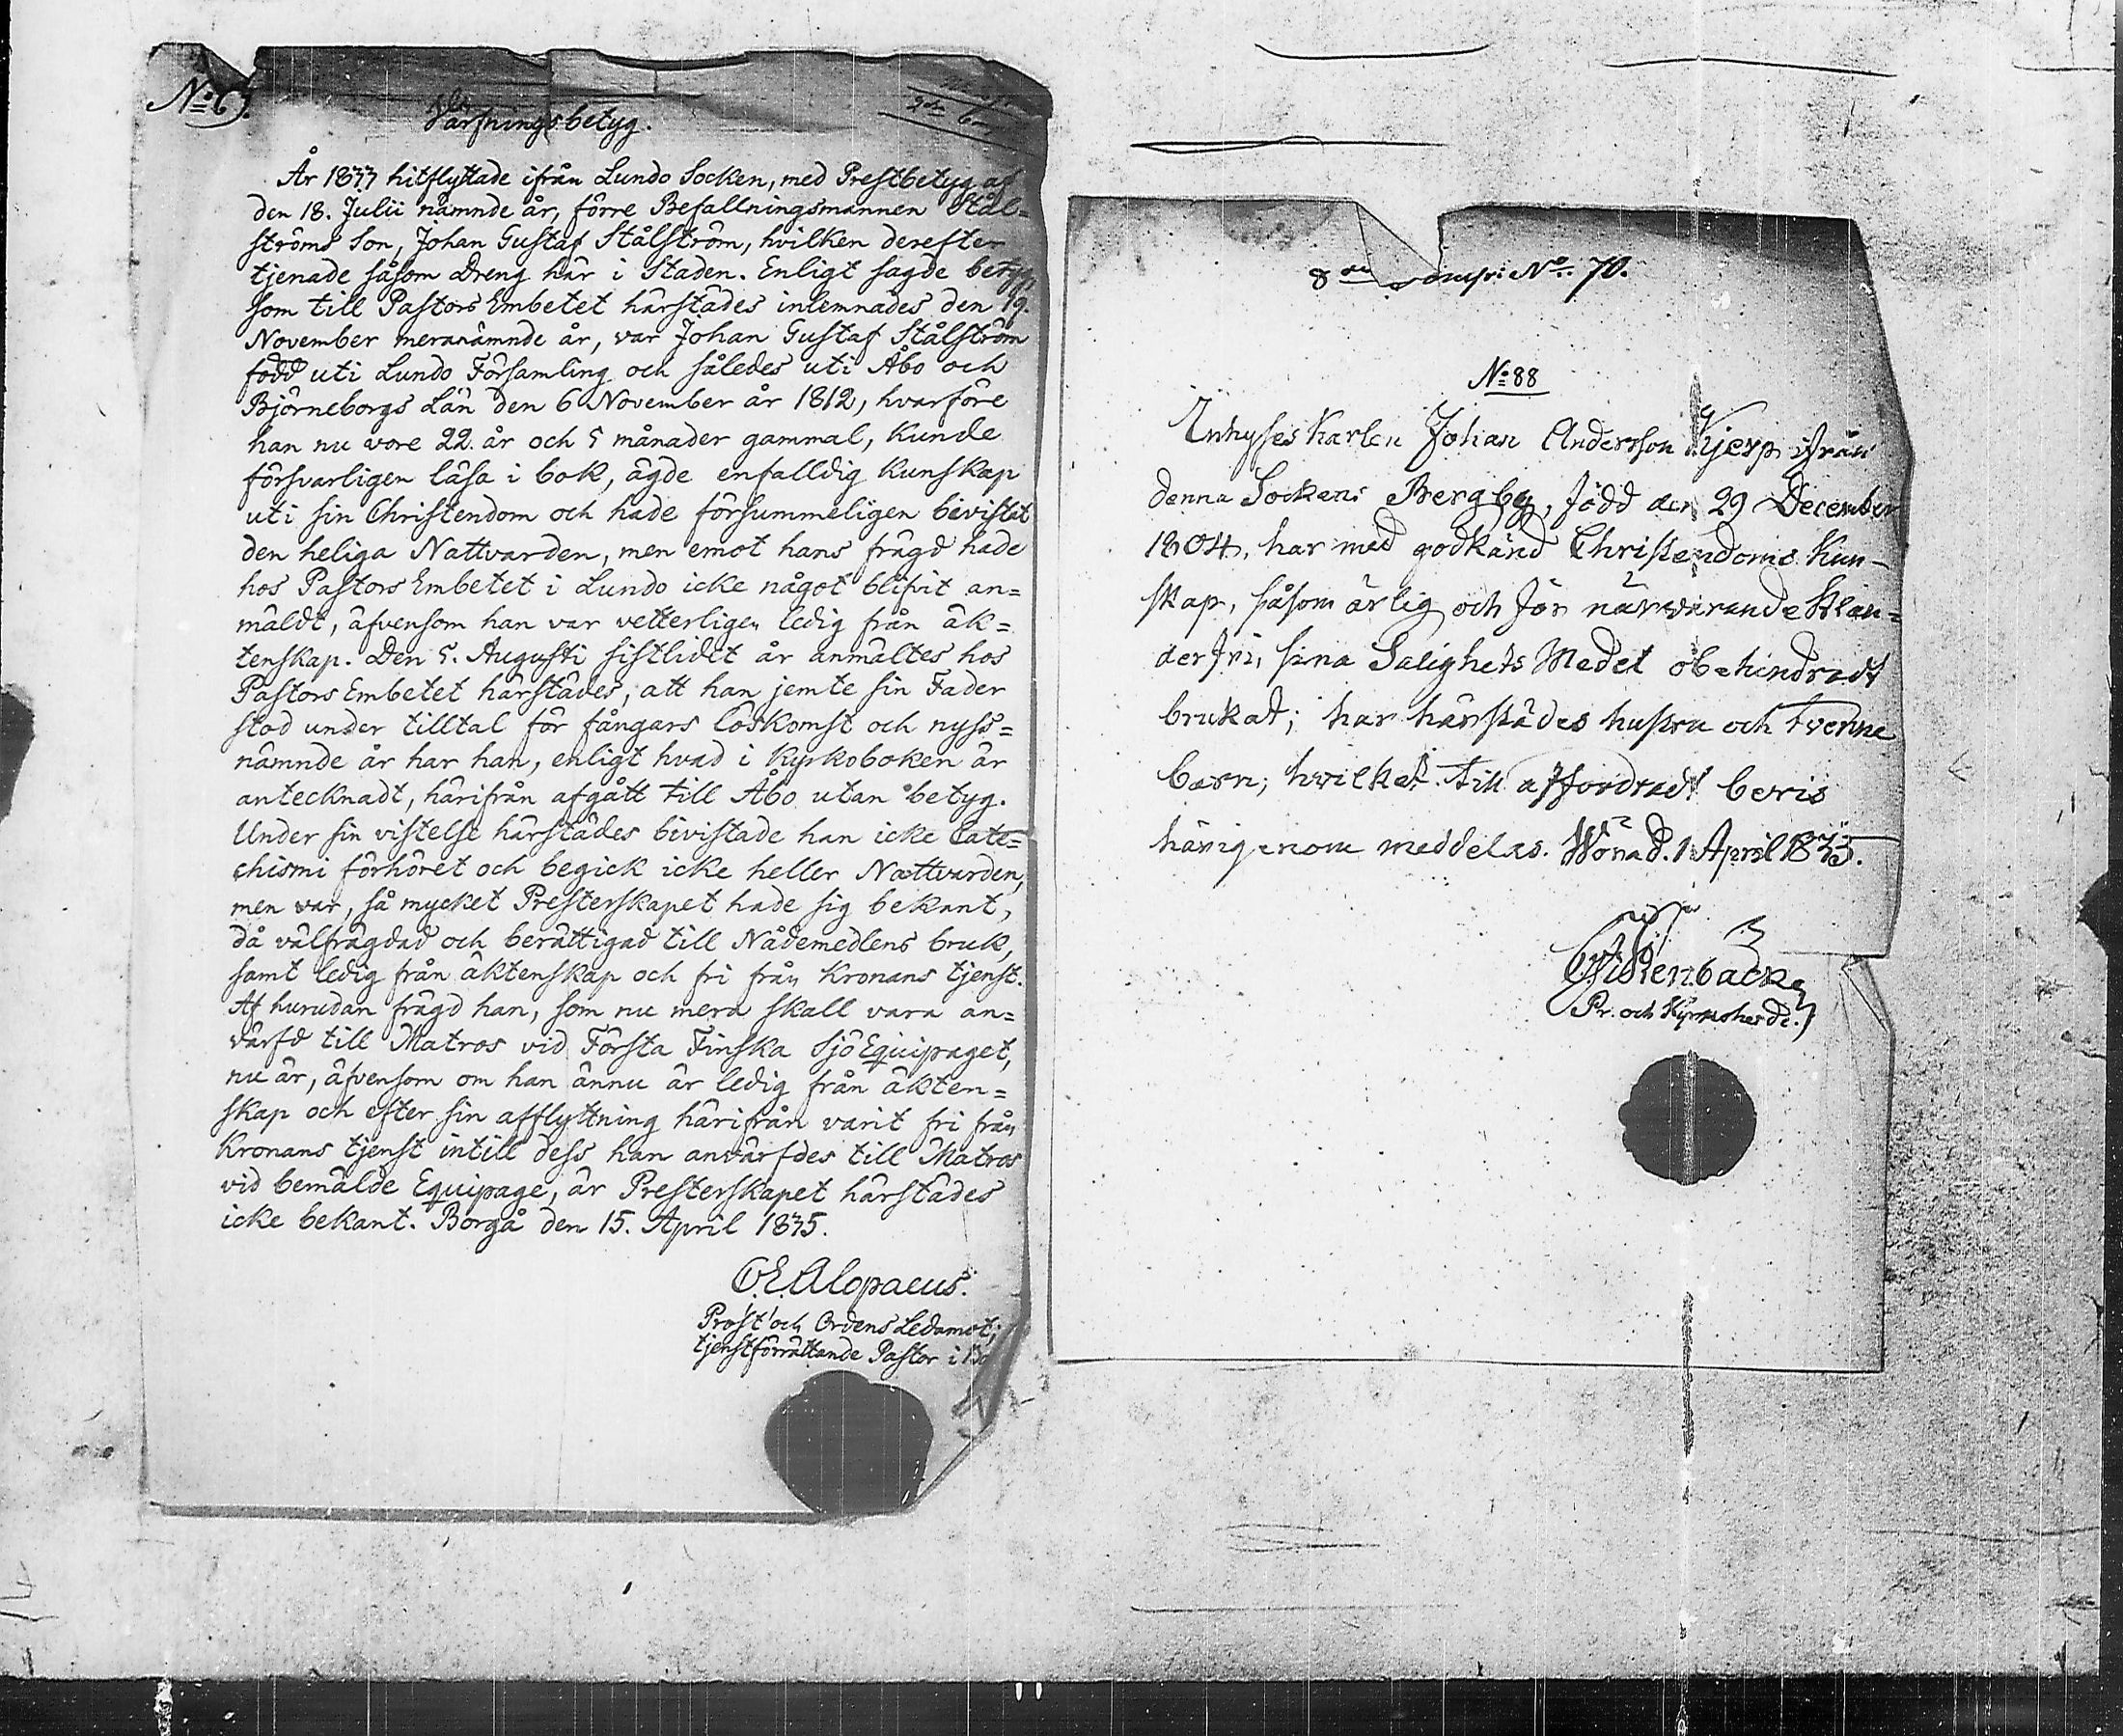 Värfningsbetyg.
År 1833 hitflyttade ifrån Lundo Socken, med Prestbetyg af
den 18. Julii nämnde år, förre Befallningsmannen Stål=
ströms Son, Johan Gustaf Stålström, hvilken derefter
tjenade såsom Dreng här i Staden. Enligt sagde betyg,
som till Pastors Embetet härstädes inlemnades den 19.
November meranämnde år, var Johan Gustaf Stålström
född uti Lundo Församling och således uti Åbo och
Björneborgs Län den 6 November år 1812, hvarföre
han nu vore 22 år och 5 månader gammal, kunde
försvarligen läsa i bok, ägde enfalldig kunskap
uti sin Christendom och hade försummeligen bevistat
den heliga Nattvarden, men emot hans frägd hade
hos Pastors Embetet i Lundo icke något blifvit an=
mäldt, äfvensom han var vetterligen ledig från äk=
tenskap. Den 5. Augusti sistlidet år anmältes hos
Pastors Embetet härstädes, att han jemte sin Fader
stod under tilltal för fångars löskomst och nyss=
nämnde år har han, enligt hvad i Kyrkoboken är
antecknadt, härifrån afgått till Åbo utan betyg.
Under sin vistelse härstädes bivistade han icke Cate=
chismi förhöret och begick icke heller Nattvarden,
men var, så mycket Presterskapet hade sig bekant,
då välfrägdad och berättigad till Nådemedlens bruk,
samt ledig från äktenskap och fri från Kronans tjenst.
Af hurudan frägd han, som nu mera skall vara an=
värfd till Matros vid Första Finska Sjö Equipaget,
nu är, äfvensom om han ännu är ledig från äkten=
skap och efter sin afflyttning härifrån varit fri från
Kronans tjenst intill dess han anvärfdes till Matros
vid bemälde Equipage, är Presterskapet härstädes
icke bekant. Borgå den 15. April 1835.
C. E. Alopaeus.
Prost och Ordens Ledamot,
tjenstförrättande Pastor i
8de Comp: No: 70.
No: 88
Inhyses Karlen Johan Andersson Kjerp ifrån
denna Sockens Bergby, född den 29 December
1804, har med godkänd Christendoms Kun-
skap, såsom ärlig och för närvarande Klan=
derfri, sina Salighets Medel obehindradt
brukat; har härstädes hustru och tvenne
barn; hvilket till affordradt bevis
härigenom meddelas. Wörå d. 1 April 1835.
Pr. och Kyrkoherde.